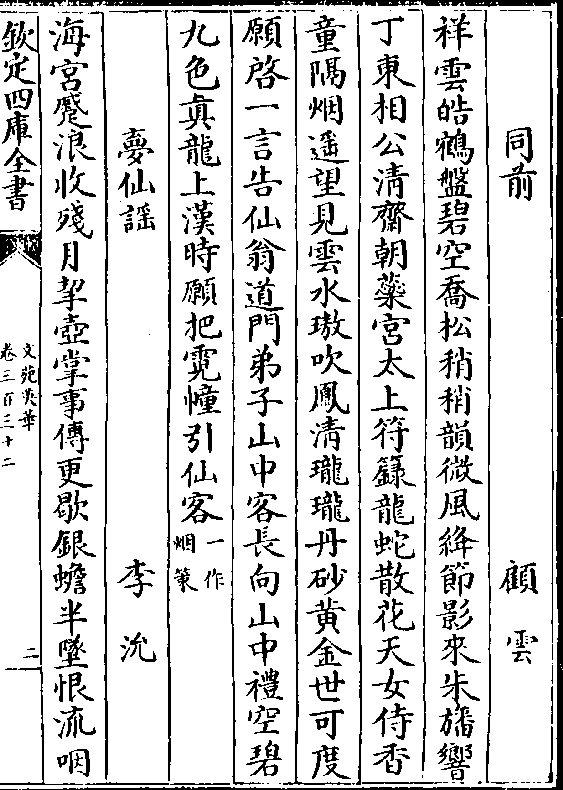 同前　顧雲
祥雲皓鶴盤碧空喬松稍稍韻微風絳節影來朱旛響
丁東相公清齋朝蘂宮太上符籙龍蛇散花天女侍香
童隅烟遥望見雲水璈吹鳳清瓏瓏丹砂黄金世可度
願啓一言告仙翁道門弟子山中客長向山中禮空碧
九色眞龍上漢時願把霓幢引仙客一作烟策
夢仙謡　李沇
海宮蹙浪收殘月挈壺掌事傳更歇銀蟾半墜恨流咽
欽定四庫全書
文苑英華
卷三百三十二
二